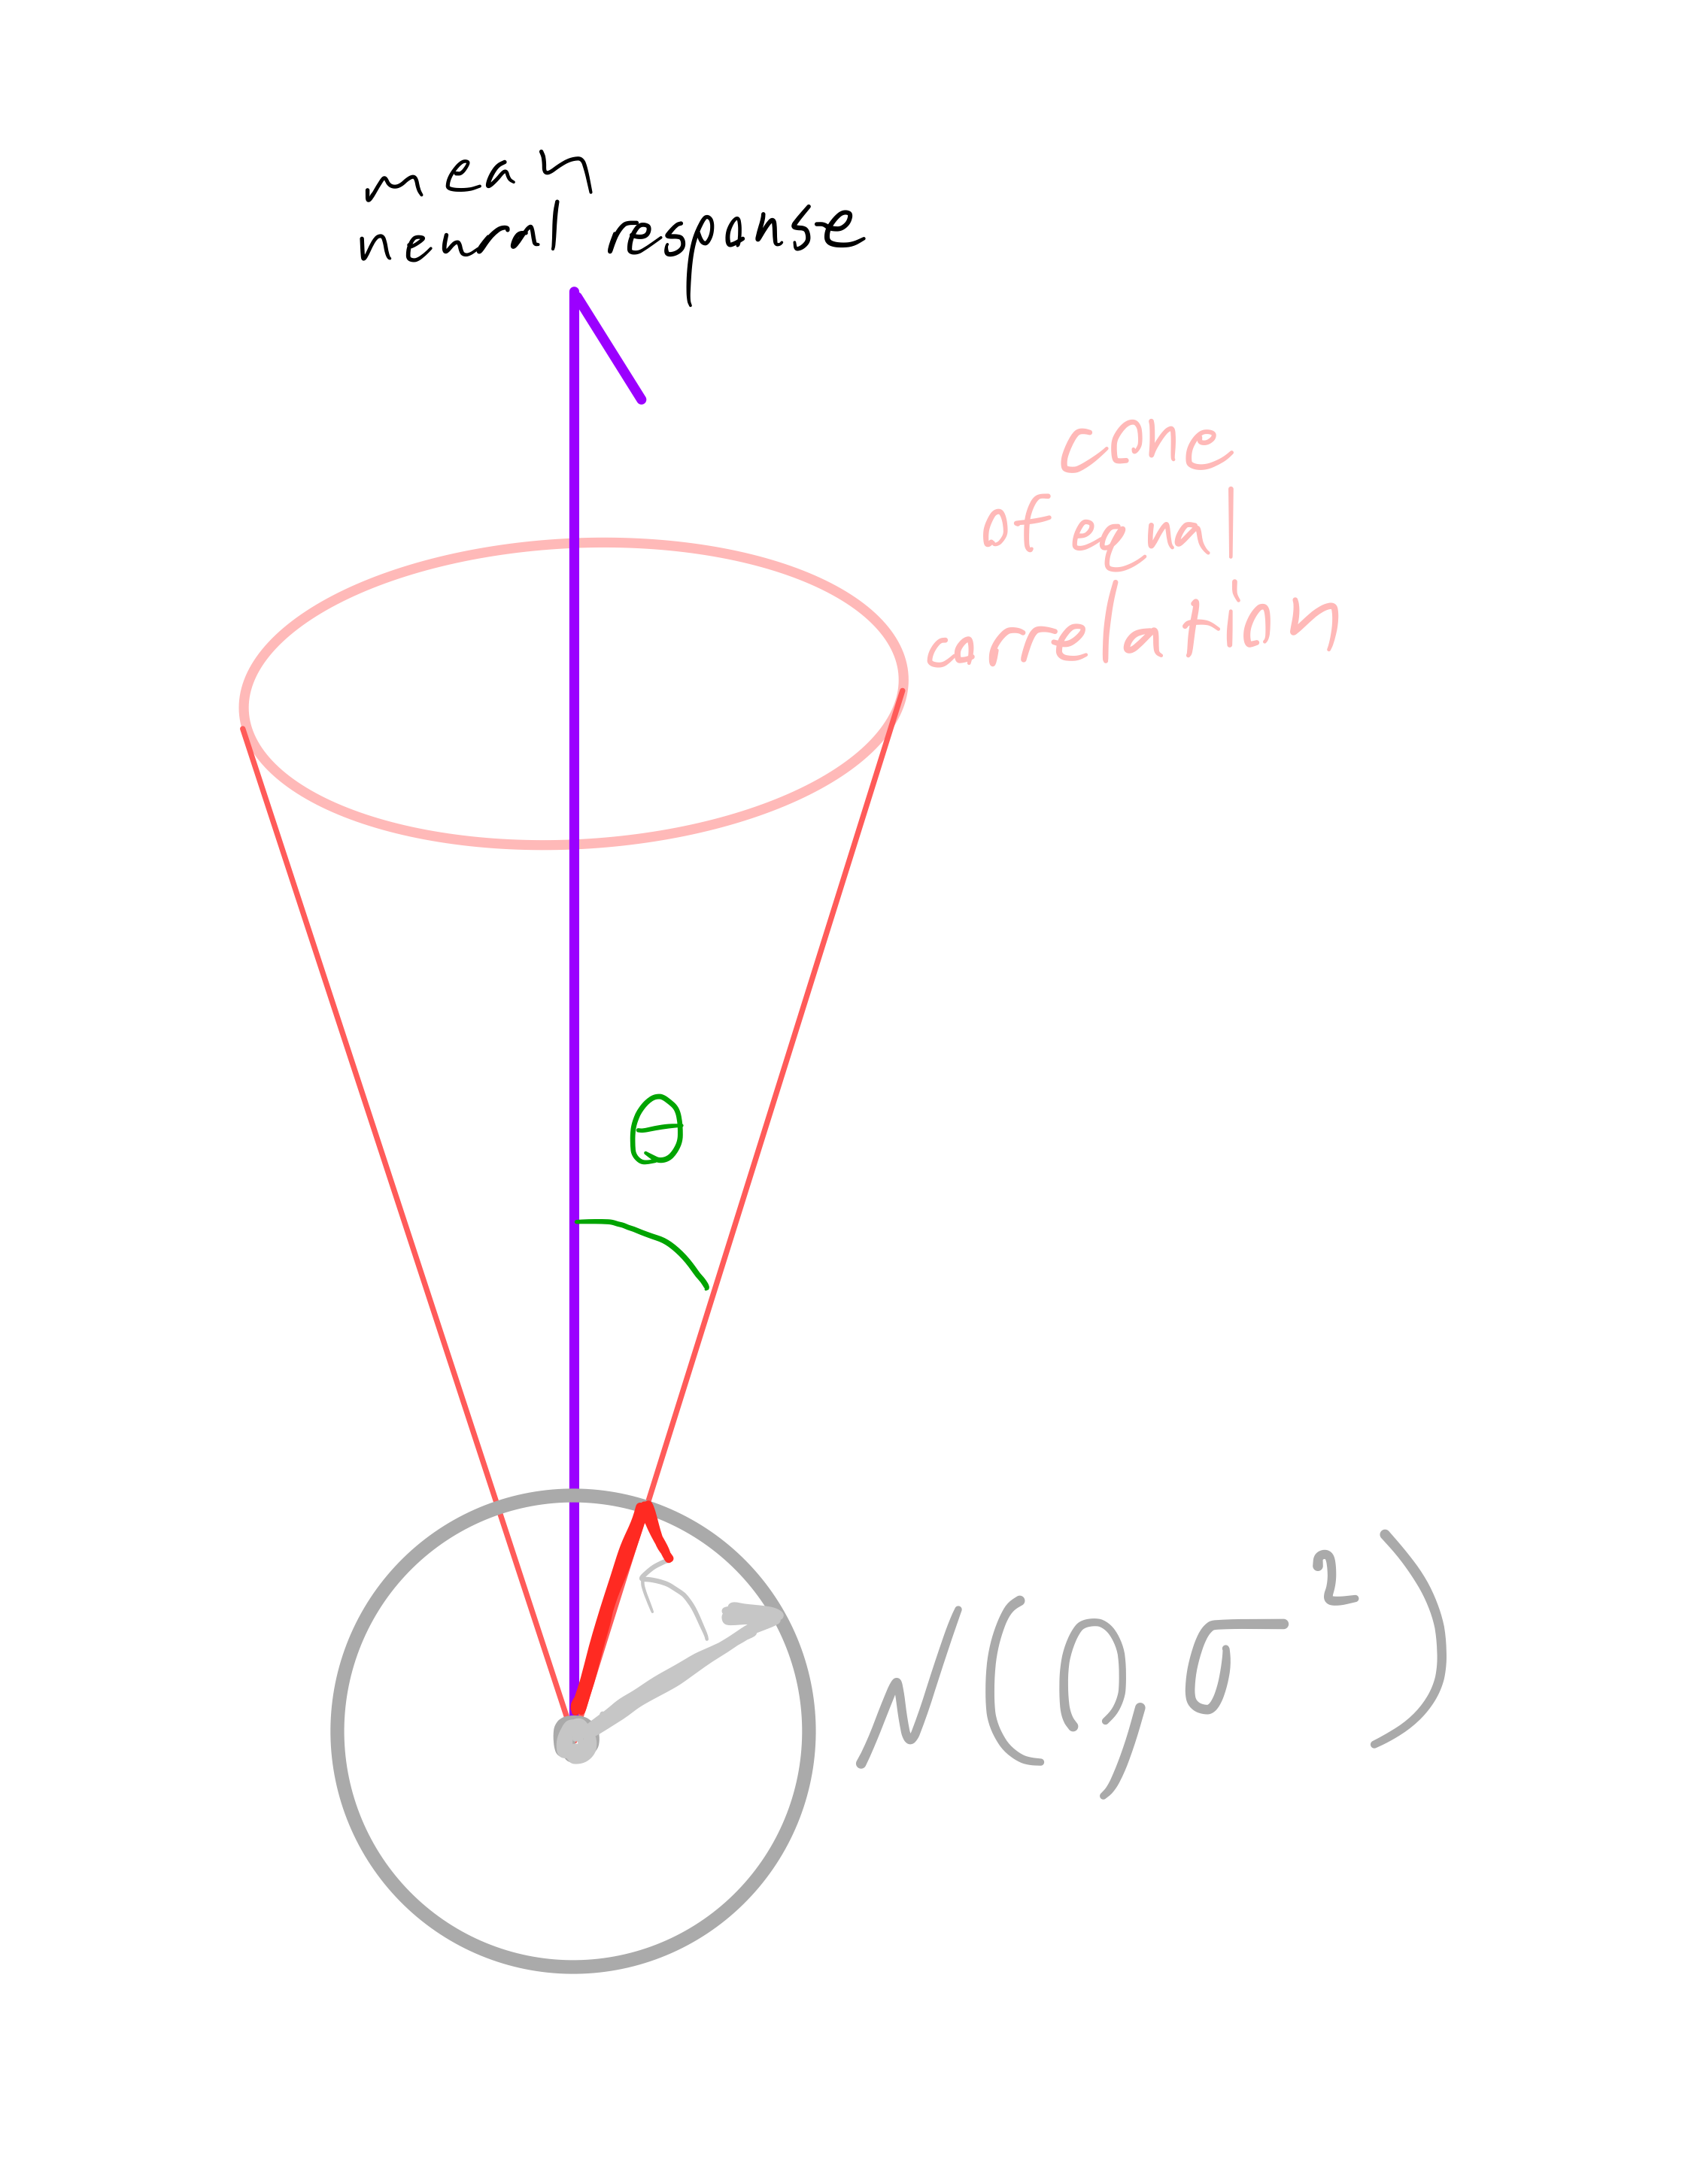 mean
neural response
cone
of equal
correlation
θ
N(0, σ²)